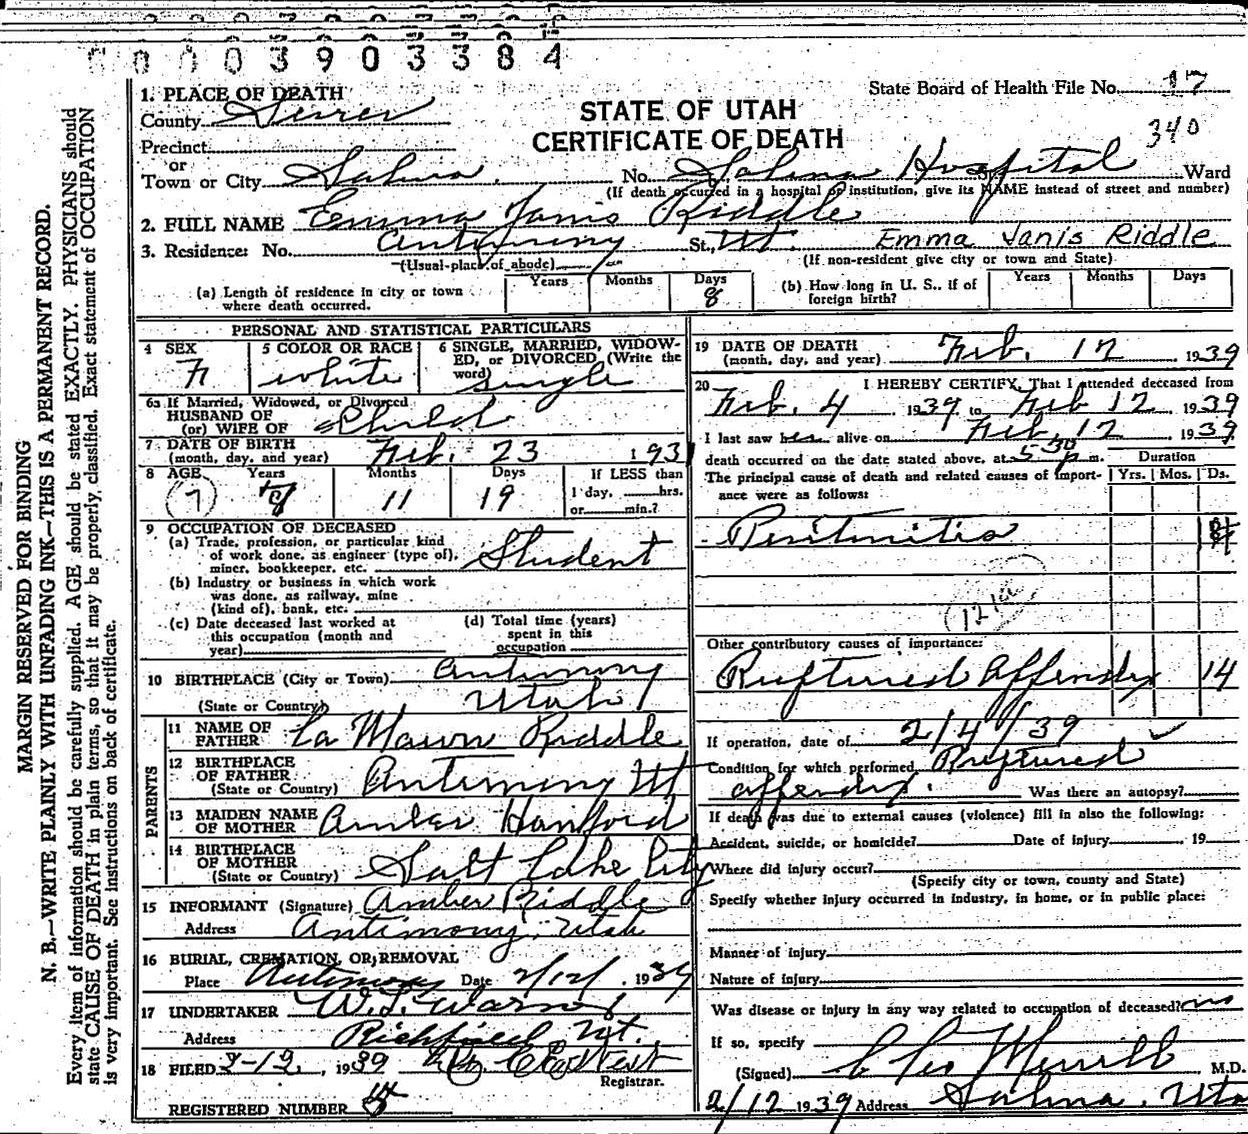 0 0 0 3 9 0 3 3 8 4
State Board of Health File No. 17
340
STATE OF UTAH
CERTIFICATE OF DEATH
1. PLACE OF DEATH
County Sevier
Precinct
or
Town or City Salina. No. Salina Hospital Ward
(If death occurred in a hospital or institution, give its NAME instead of street and number)
2. FULL NAME Emma Janis Riddle
3. Residence: No. Antimony St., Ut. Emma Janis Riddle
(Usual place of abode) (If non-resident give city or town and State)
(a) Length of residence in city or town where death occurred. Years Months Days 8
(b) How long in U. S., if of foreign birth? Years Months Days
PERSONAL AND STATISTICAL PARTICULARS
4 SEX F
5 COLOR OR RACE white
6 SINGLE, MARRIED, WIDOWED, or DIVORCED (Write the word) single
6a If Married, Widowed, or Divorced
HUSBAND OF
(or) WIFE OF Child
7 DATE OF BIRTH
(month, day, and year) Feb. 23 1931
8 AGE Years Months Days If LESS than
7 11 19 1 day, hrs.
or min.?
9 OCCUPATION OF DECEASED
(a) Trade, profession, or particular kind
of work done, as engineer (type of),
miner, bookkeeper, etc. Student
(b) Industry or business in which work
was done, as railway, mine
(kind of), bank, etc.
(c) Date deceased last worked at
this occupation (month and
year)
(d) Total time (years)
spent in this
occupation
10 BIRTHPLACE (City or Town) Antimony
(State or Country) Utah
PARENTS
11 NAME OF
FATHER La Mawn Riddle
12 BIRTHPLACE
OF FATHER
(State or Country) Antimony Ut
13 MAIDEN NAME
OF MOTHER Amber Hanford
14 BIRTHPLACE
OF MOTHER
(State or Country) Salt Lake City
15 INFORMANT (Signature) Amber Riddle
Address Antimony, Utah
16 BURIAL, CREMATION, OR REMOVAL
Place Antimony Date 2/12/ 1939
17 UNDERTAKER
Address Richfield Ut.
18 FILED 2-12, 1939
Registrar.
REGISTERED NUMBER
19 DATE OF DEATH
(month, day, and year) Feb. 12 1939
20 I HEREBY CERTIFY, That I attended deceased from
Feb. 4 1939 to Feb 12 1939
I last saw her alive on Feb. 12 1939
death occurred on the date stated above, at 5 30 p m.
The principal cause of death and related causes of importance were as follows:
Duration
Yrs. Mos. Ds.
Peritonitis 8
121a
Other contributory causes of importance:
Ruptured Appendix 14
If operation, date of 2/4/39
Condition for which performed Ruptured
appendix. Was there an autopsy?
If death was due to external causes (violence) fill in also the following:
Accident, suicide, or homicide? Date of injury 19
Where did injury occur?
(Specify city or town, county and State)
Specify whether injury occurred in industry, in home, or in public place:
Manner of injury
Nature of injury
Was disease or injury in any way related to occupation of deceased? no
If so, specify
(Signed) Merrill M.D.
2/12 1939 Address Salina, Uta
MARGIN RESERVED FOR BINDING
N. B.—WRITE PLAINLY WITH UNFADING INK—THIS IS A PERMANENT RECORD.
Every item of information should be carefully supplied. AGE should be stated EXACTLY. PHYSICIANS should
state CAUSE OF DEATH in plain terms, so that it may be properly classified. Exact statement of OCCUPATION
is very important. See instructions on back of certificate.